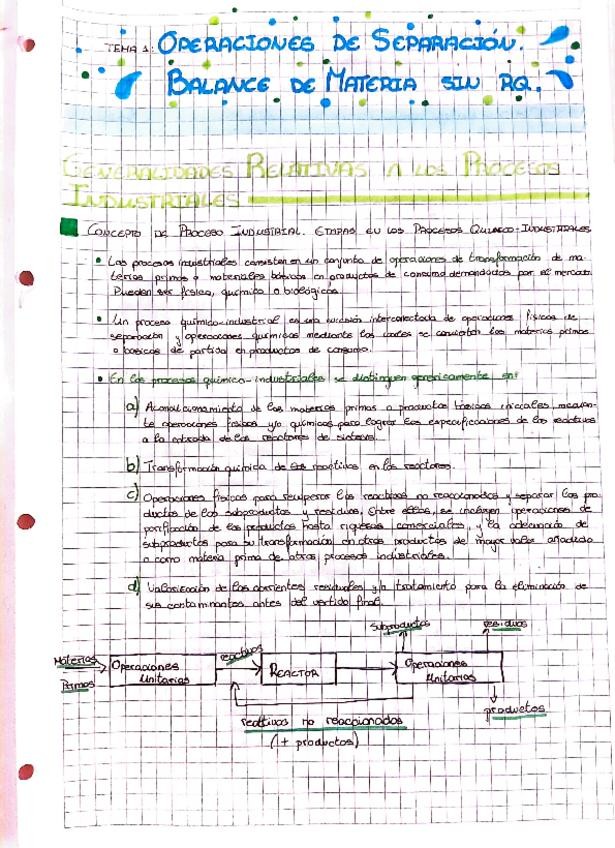 TEMA 1: OPERACIONES DE SEPARACIÓN.
BALANCE DE MATERIA SIN RQ.
GENERALIDADES RELATIVAS A LOS PROCESOS
INDUSTRIALES
CONCEPTO DE PROCESO INDUSTRIAL. ETAPAS EN LOS PROCESOS QUÍMICO-INDUSTRIALES
• Los procesos industriales consisten en un conjunto de operaciones de transformación de ma-
terias primas o materiales básicos en productos de consumo demandados por el mercado.
Pueden ser físico, químico o biológico.
• Un proceso químico-industrial es una interconectada de operaciones físicas de
separación y operaciones químicas mediante las cuales se convierten las materias primas
o básicas de partida en productos de consumo.
• En los procesos químico-industriales se distinguen genéricamente en:
a) Acondicionamiento de las materias primas o productos básicos iniciales, median-
te operaciones físicas y/o químicas para lograr las especificaciones de los reactivos
a la entrada de los reactores de síntesis.
b) Transformación química de los reactivos en los reactores.
c) Operaciones físicas para recuperar los reactivos no reaccionados y separar los pro
ductos de los subproductos y residuos. Entre ellas, se incluyen operaciones de
purificación de los productos hasta riquezas comerciales, y la adecuación de
subproductos para su transformación en otros productos de mayor valor añadido
o como materia prima de otros procesos industriales.
d) Valorización de las corrientes residuales y/o tratamiento para la eliminación de
sus contaminantes antes del vertido final.
subproductos residuos
Materias Primas
Operaciones Unitarias
reactivos
REACTOR
Operaciones Unitarias
productos
reactivos no reaccionados
(+ productos)